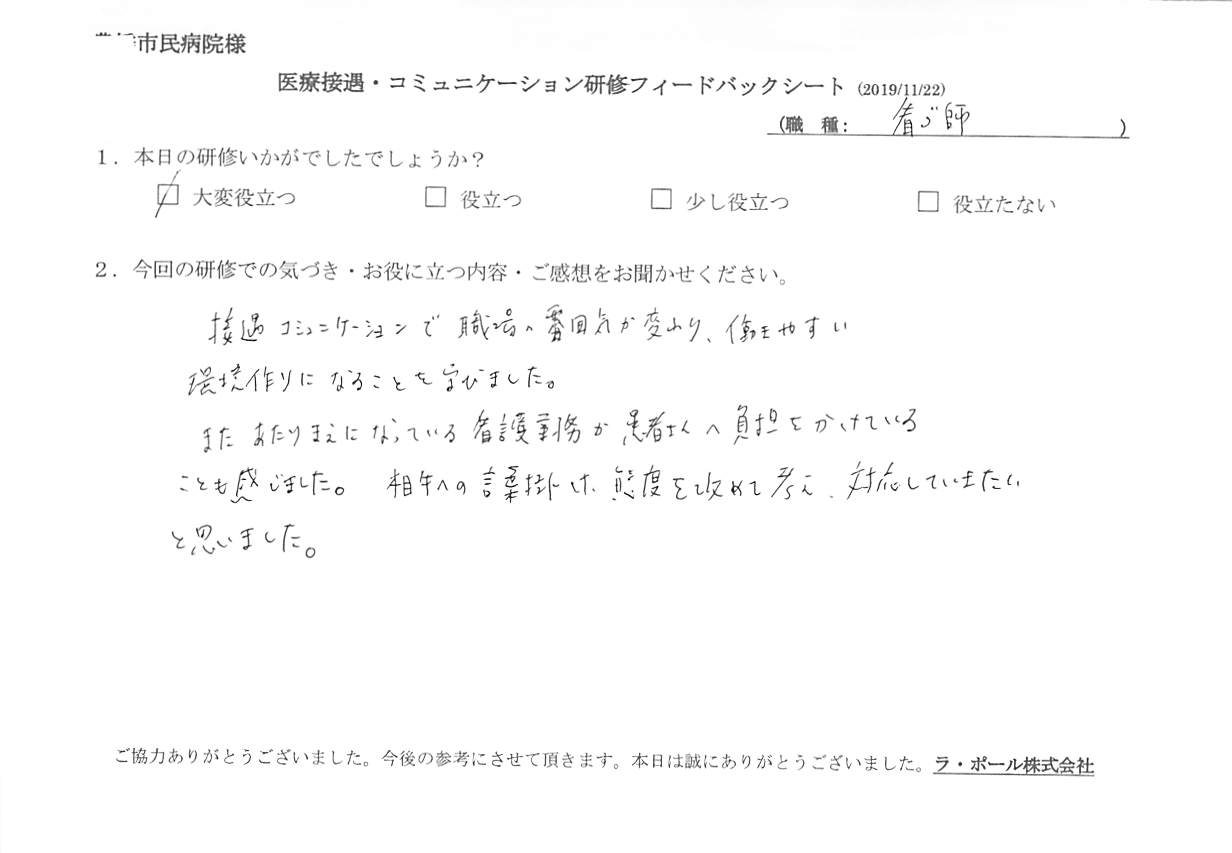 市民病院様
医療接遇・コミュニケーション研修フィードバックシート (2019/11/22)
(職 種: 看ゴ師 )
1. 本日の研修いかがでしたでしょうか?
大変役立つ 役立つ 少し役立つ 役立たない
2. 今回の研修での気づき・お役に立つ内容・ご感想をお聞かせください。
接遇コミュニケーションで職場の雰囲気が変わり、働きやすい
環境作りになることを学びました。
またあたりまえになっている看護業務が患者さんへ負担をかけている
ことも感じました。 相手への言葉掛け、態度を改めて考え、対応していきたい
と思いました。
ご協力ありがとうございました。今後の参考にさせて頂きます。本日は誠にありがとうございました。ラ・ポール株式会社